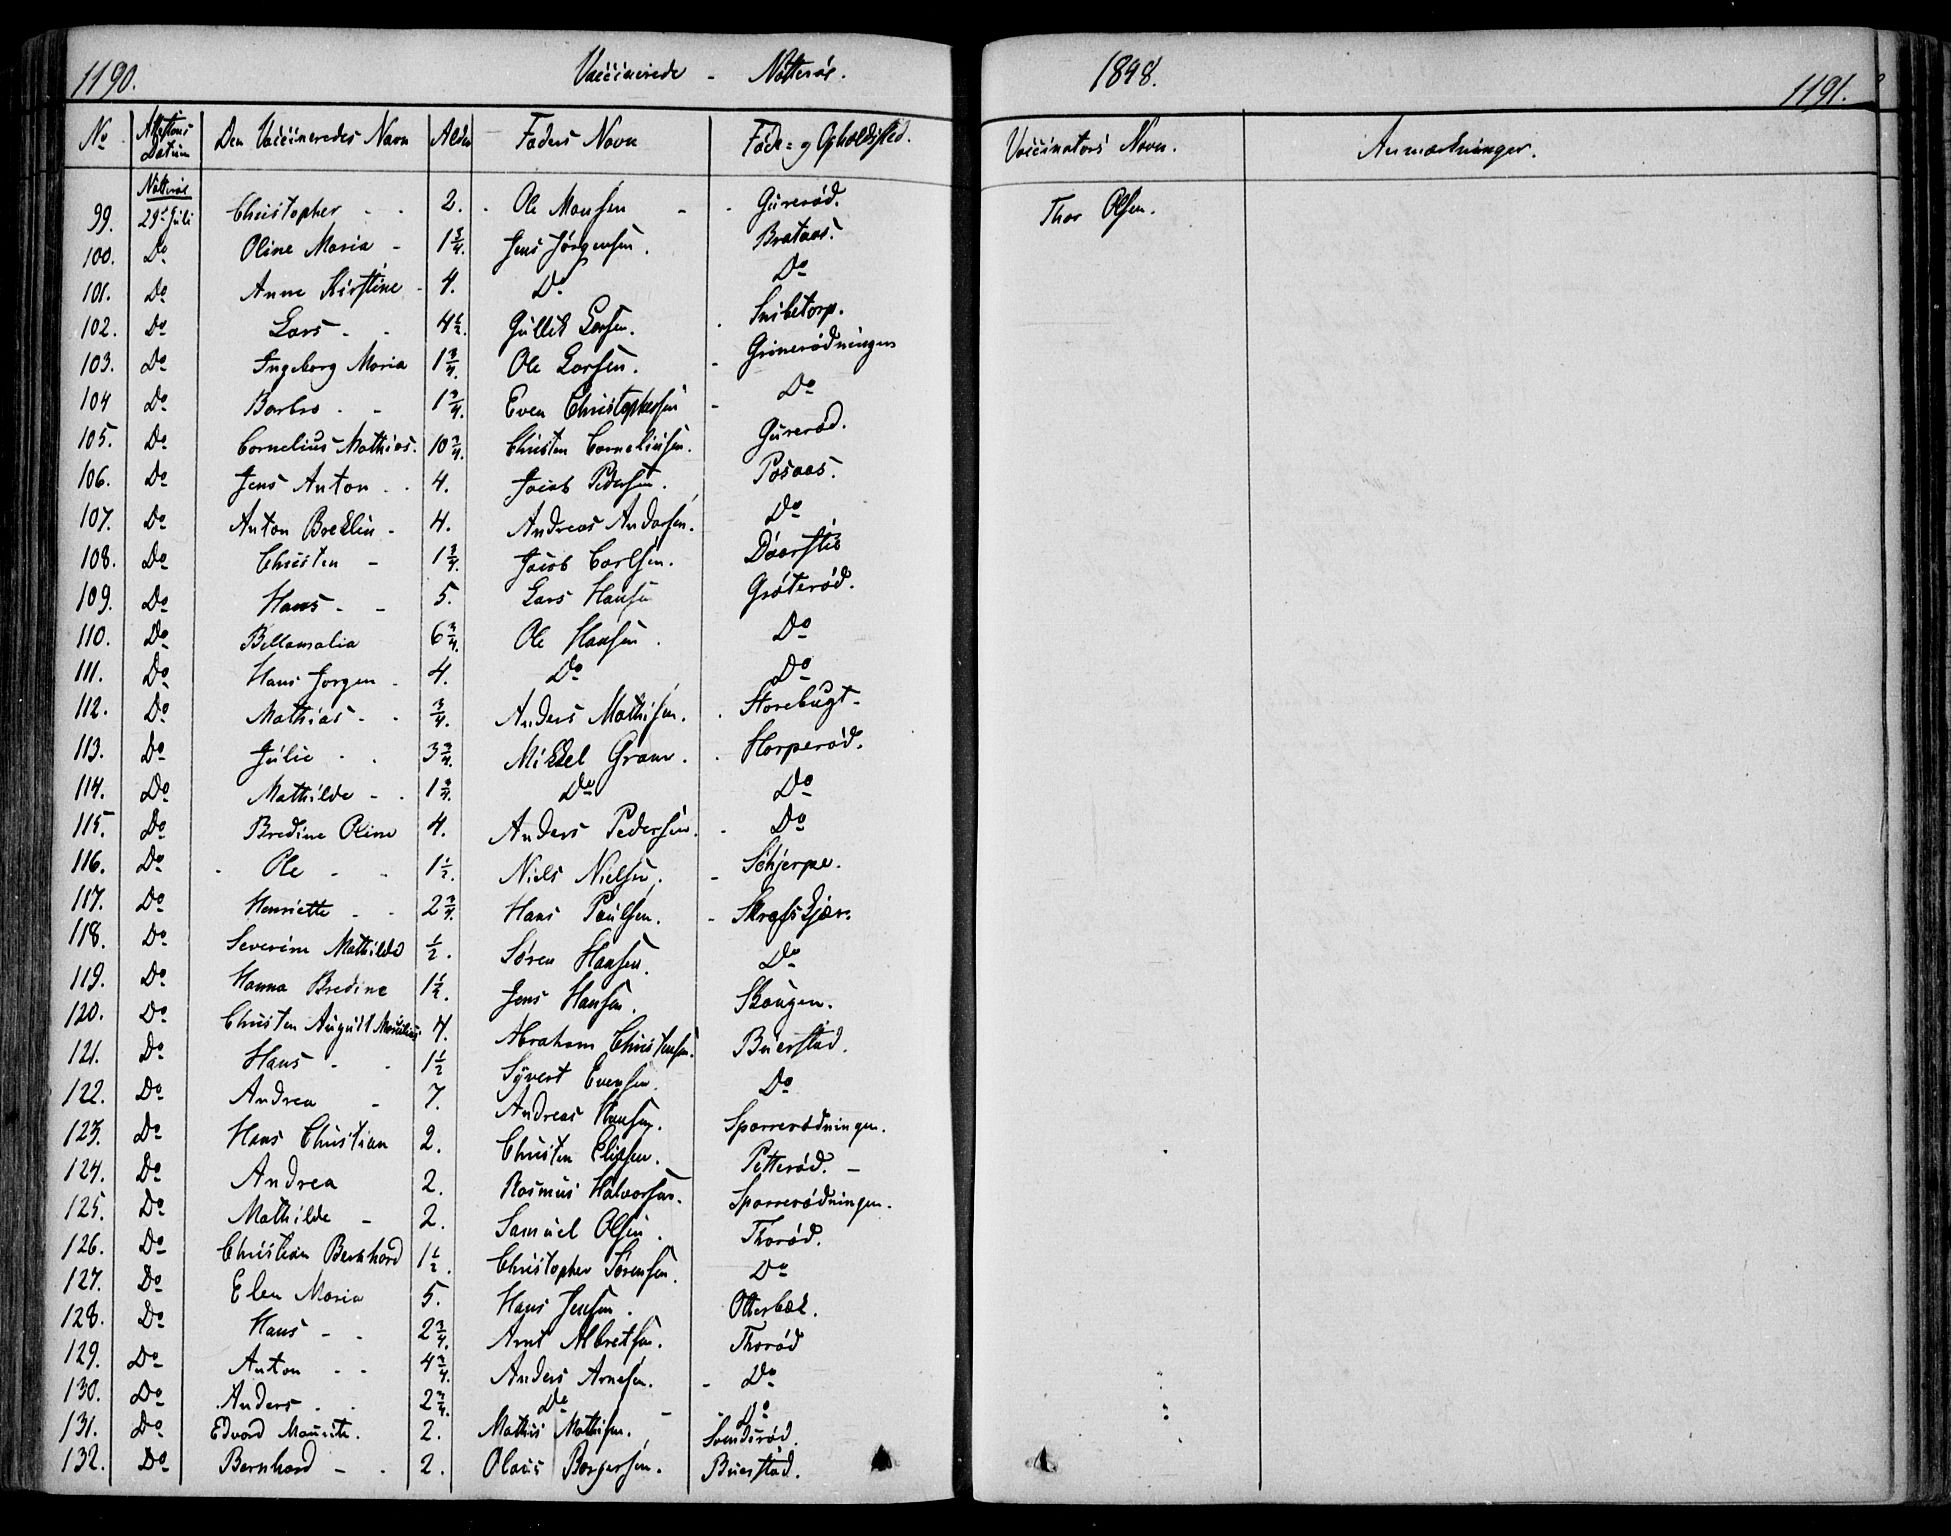 1190. Vaccinerede - Nøtterøe. 1848. 1191.
No Attestens Datum Den Vaccineredes Navn Alder Faders Navn Føde- og Opholdssted. Vaccinators Navn. Anmærkninger.
Nøtterøe
99. 29de Juli Christopher - - 2. Ole Hansen - - Gurerød. Thor Olsen.
100. Do Oline Maria - 1 3/4. Jens Jørgensen. Brataas.
101. Do Anne Kirstine - 4. Do Do
102. Do Lars - - 4 1/2. Gullik Larsen. Snibetorp.
103. Do Ingeborg Maria 1 3/4. Ole Larsen. - Grimerødningen
104 Do Barbro - - 1 3/4. Even Christophersen - Do
105. Do Cornelius Mathias. 10 3/4. Christen Corneliusen. Gurerød.
106. Do Jens Anton - - 4. Jacob Pedersen. Posaas.
107. Do Anton - 4. Andreas Andersen. Do
108. Do Christen - 1 3/4. Jacob Carlsen.
109. Do Hans - - 5. Lars Hansen Grøterød.
110. Do 6 3/4. Ole Hansen. Do
111. Do Hans Jorgen - 4. Do Do
112. Do Mathias - - 3/4. Anders Mathisen. - Storebugt-
113. Do Julie - - 3 3/4. Mikkel Gram. - Horperød.
114. Do Mathilde - - 1 3/4. Do Do
115. Do Bredine Oline 4. Anders Pedersen. - Do
116. Do - Ole - - 1 1/2. Niels Nielsen. - Schjerpe.
117. Do Henriette - - 2 3/4. Hans Paulsen. - Skrafskjær.
118. Do Severine Mathilde 1/2. Søren Hansen. Do
119. Do Hanna Bredine 1 1/2. Jens Hansen. Skougen.
120. Do Christen August 4. Abraham Christensen. Buerstad.
121. Do Hans - - 1 1/2 Syvert Evensen. Do
122. Do Andrea - 7. Andreas Hansen. Sparrerødningen.
123. Do Hans Christian 2. Christen Eliasen. Petterød. -
124. Do Andrea 2. Rasmus Halvorsen. Sparrerødningen.
125. Do Mathilde - 2. Samuel Olsen. Thorød.
126. Do Christian Bernhard 1 1/2. Christopher Sørensen. Do
127. Do Elen Maria 5. Hans Jensen. Otterbæk.
128. Do Hans - - 2 3/4. Arnt Albretsen. Thorød
129. Do Anton - - 4 3/4. Anders Arnesen. - Do
130. Do Anders - - 2 3/4. Do - Do
131. Do Edvard Mauritz. 2. Mathis Mathisen. Svendsrød.
132. Do Bernhard - - 2. Olaus Borgersen. Buerstad.